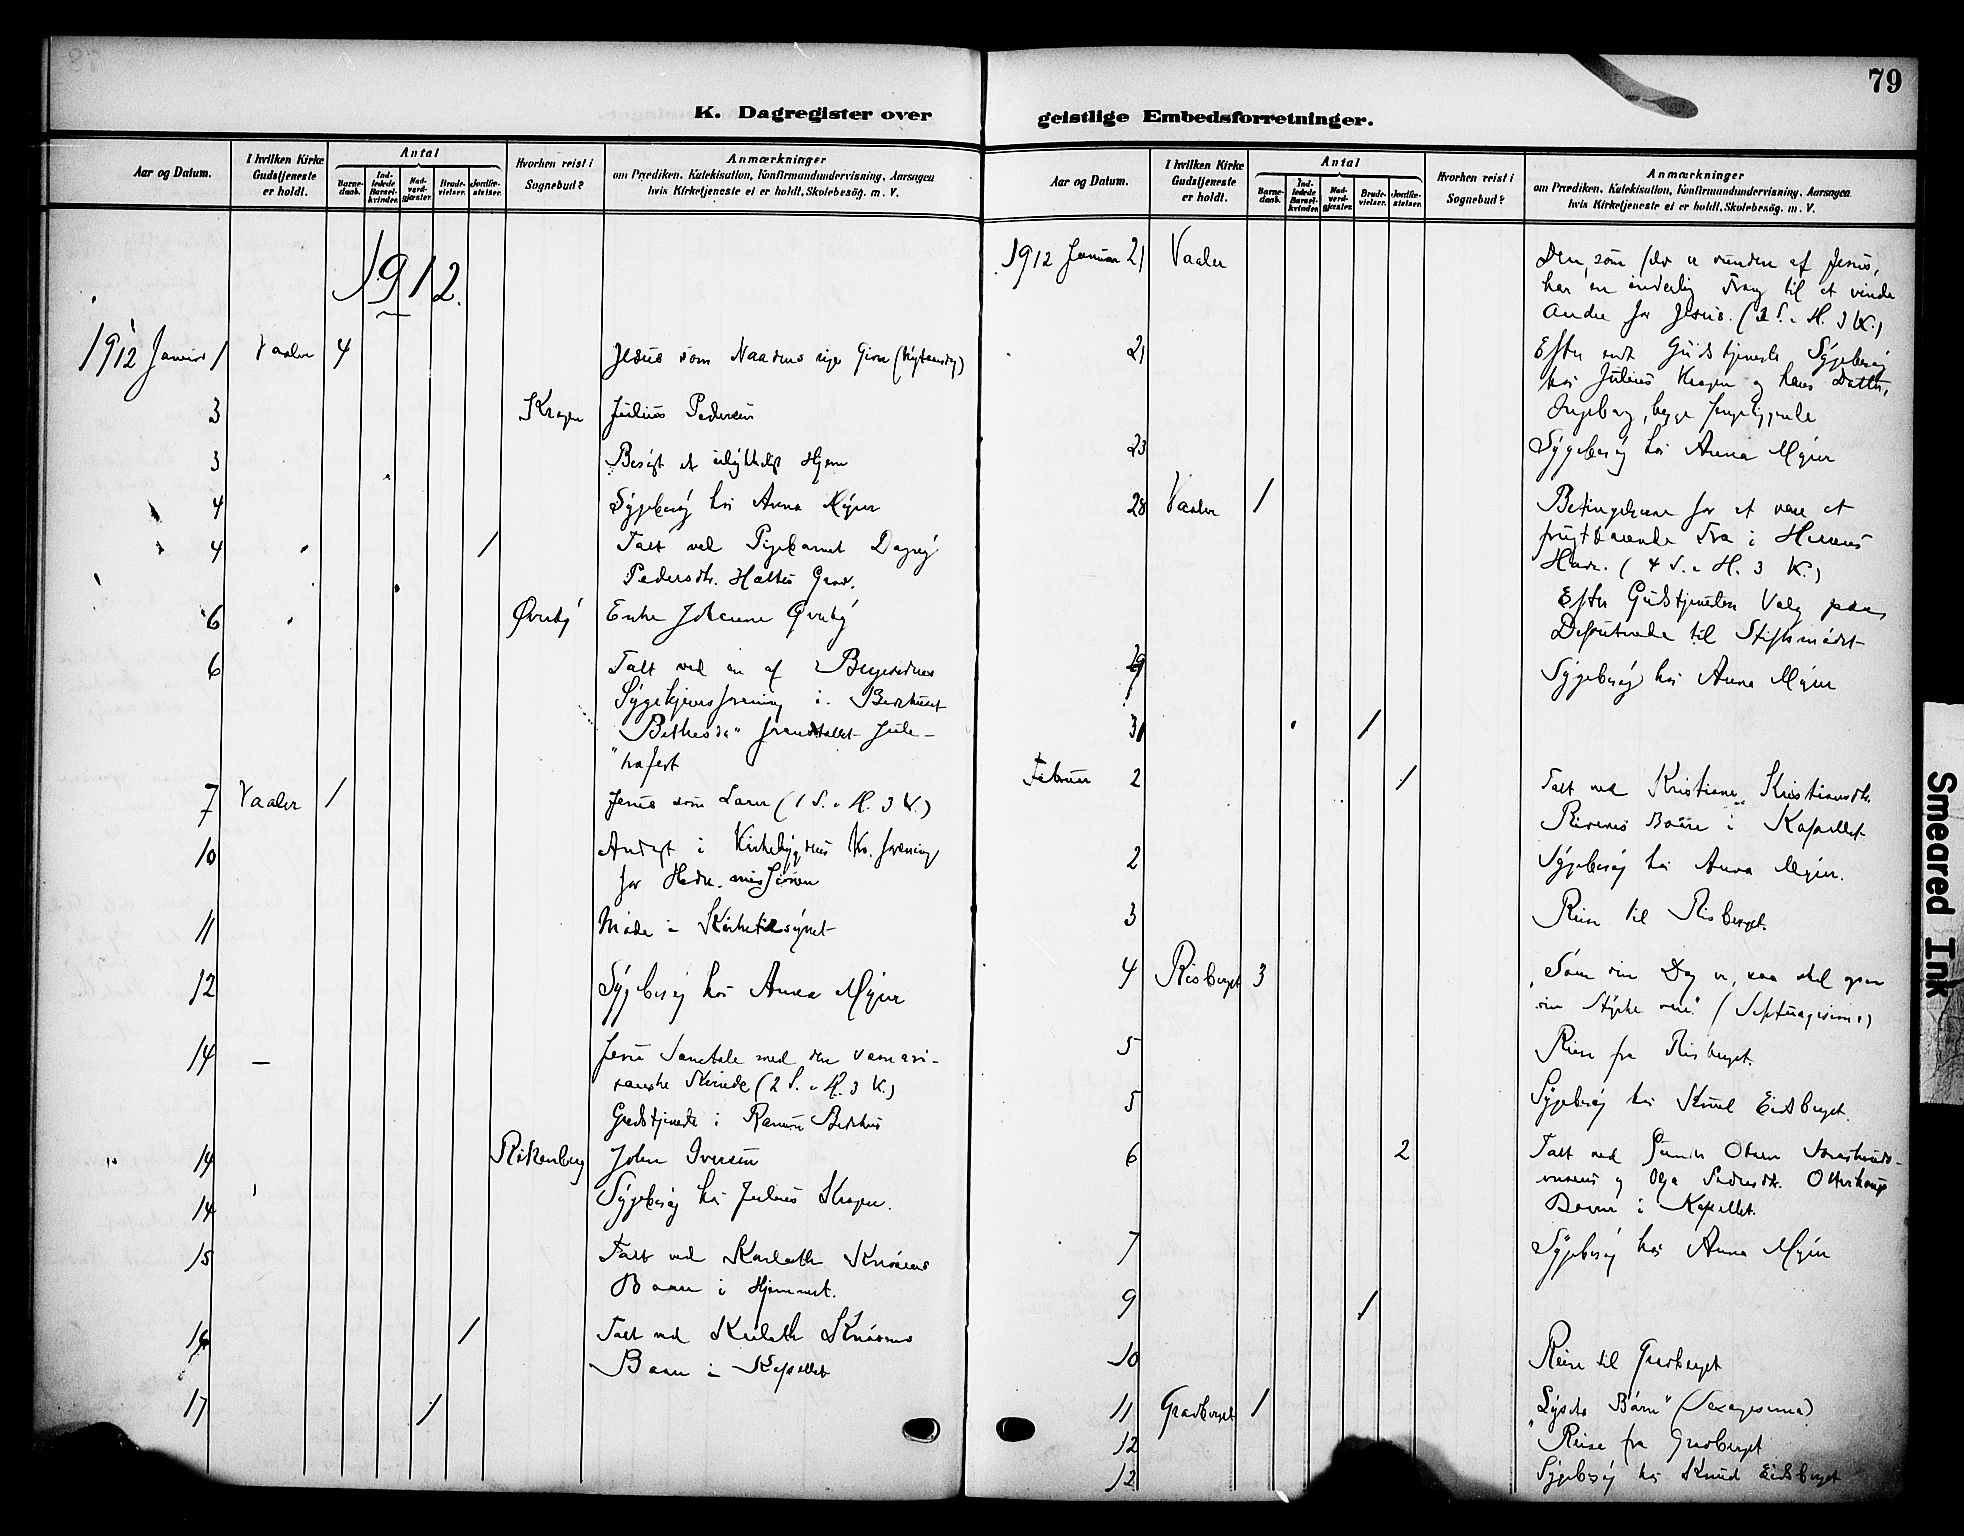 79
K. Dagregister over
geistlige Embedsforretninger.
Aar og Datum.
I hvilken Kirke Gudstjeneste er holdt.
Antal
Barnedaab.
Indledede Barselkvinder.
Nadverdgjæster.
Brudevielser.
Jordfæstelser.
Hvorhen reist i Sognebud?
Anmærkninger
om Prædiken, Katekisation, Konfirmandundervisning, Aarsagen
hvis Kirketjeneste ei er holdt, Skolebesøg. m. V.
1912.
1912 Januar 1 Vaaler 4 Jesus som Naadens Giver (Nytaarsdag)
3 Kragen Julius Pedersen
3 Besøgt et Hjem
4 Sygebesøg hos Anna Myrer
4 1 Talt ved Pigebarnet Dagny
Pedersdtr. Grav.
6 Øvreby Enke Johanne Øvreby
6 Talt ved en af
i Bedehuset
"Bethesda" Jule-
trafest
7 Vaaler 1 Jesus som Lærer (1 S. e. H. 3 K.)
10 Andagt i Kirkebygdens Kv. forening
for Hedn. missionen
11 Møde i Kirketilsynet
12 Sygebesøg hos Anna Myrer
14 – Jesu Samtale med den samari-
tanske Kvinde (2 S. e. H. 3 K.)
Gudstjeneste i Bedehus
14 Rikenberg John Iversen
14 Sygebesøg hos Julius Kragen.
15 Talt ved
Baare i Hjemmet.
16 1 Talt ved
Baare i Kapellet
17 1
Aar og Datum.
I hvilken Kirke Gudstjeneste er holdt.
Antal
Barnedaab.
Indledede Barselkvinder.
Nadverdgjæster.
Brudevielser.
Jordfæstelser.
Hvorhen reist i Sognebud?
Anmærkninger
om Prædiken, Katekisation, Konfirmandundervisning, Aarsagen
hvis Kirketjeneste ei er holdt, Skolebesøg. m. V.
1912 Januar 21 Vaaler Den, som selv er vunden af Jesus,
har en inderlig Trang til at vinde
Andre for Jesus. (3 S. e. H. 3 K.)
21 Efter endt Gudstjeneste Sygebesøg
hos Julius Kragen og hans Datter,
Ingeborg, begge sengeliggende
23 Sygebesøg hos Anna Myrer
28 Vaaler 1 Betingelserne for at være et
frugtbærende Træ i Herrens
Have. (4 S. e. H. 3 K.)
Efter Gudstjenesten Valg paa
Deputerede til Stiftsmødet
29 Sygebesøg hos Anna Myrer
31 1
Februar 2 1 Talt ved Kristiane Kristiansdtr.
Baare i Kapellet
2 Sygebesøg hos Anna Myrer.
3 Reise til Risberget.
4 Risberget 3 "Som din Dag er, saa skal ogsaa
din Styrke være." (Septuagesima)
5 Reise fra Risberget.
5 Sygebesøg hos Knud Eidsberget.
6 2 Talt ved Gunder Olsen
og Olga Pedersdtr.
Baarer i Kapellet.
7 Sygebesøg hos Anna Myrer
9 1
10 Reise til Gravberget
11 Gravberget 1 "Lysets Børn" (Sexagesima)
12 Reise fra Gravberget
12 Sygebesøg hos Knud Eidsberget
Smeared Ink